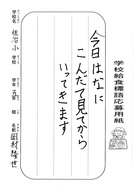 学校給食標語応募用紙
今日はなに
こんだて見てから
いってきます
学校名 小 学校 学年 年 名前